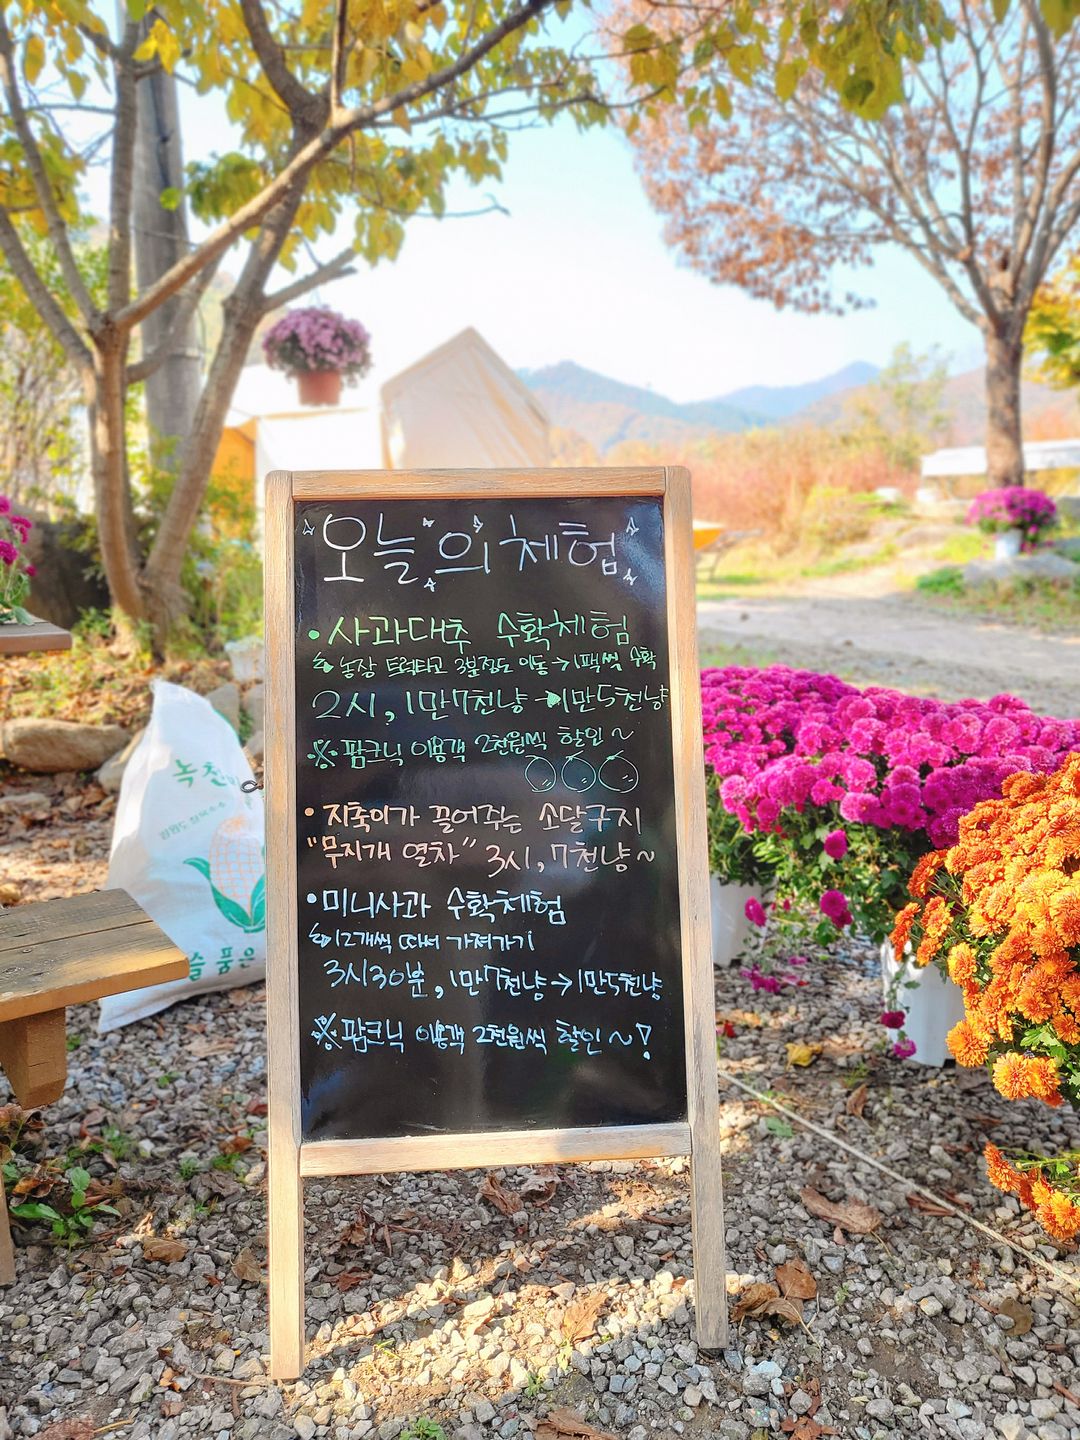 오늘의 체험
• 사과대추 수확체험
농장 트럭타고 3분정도 이동 → 1팩씩 수확
2시, 1만7천냥 → 1만5천냥
※ 팜크닉 이용객 2천원씩 할인 ~
• 지축이가 끌어주는 소달구지
"무지개 열차" 3시, 7천냥 ~
• 미니사과 수확체험
12개씩 따서 가져가기
3시30분, 1만7천냥 → 1만5천냥
※ 팜크닉 이용객 2천원씩 할인 ~!
녹천